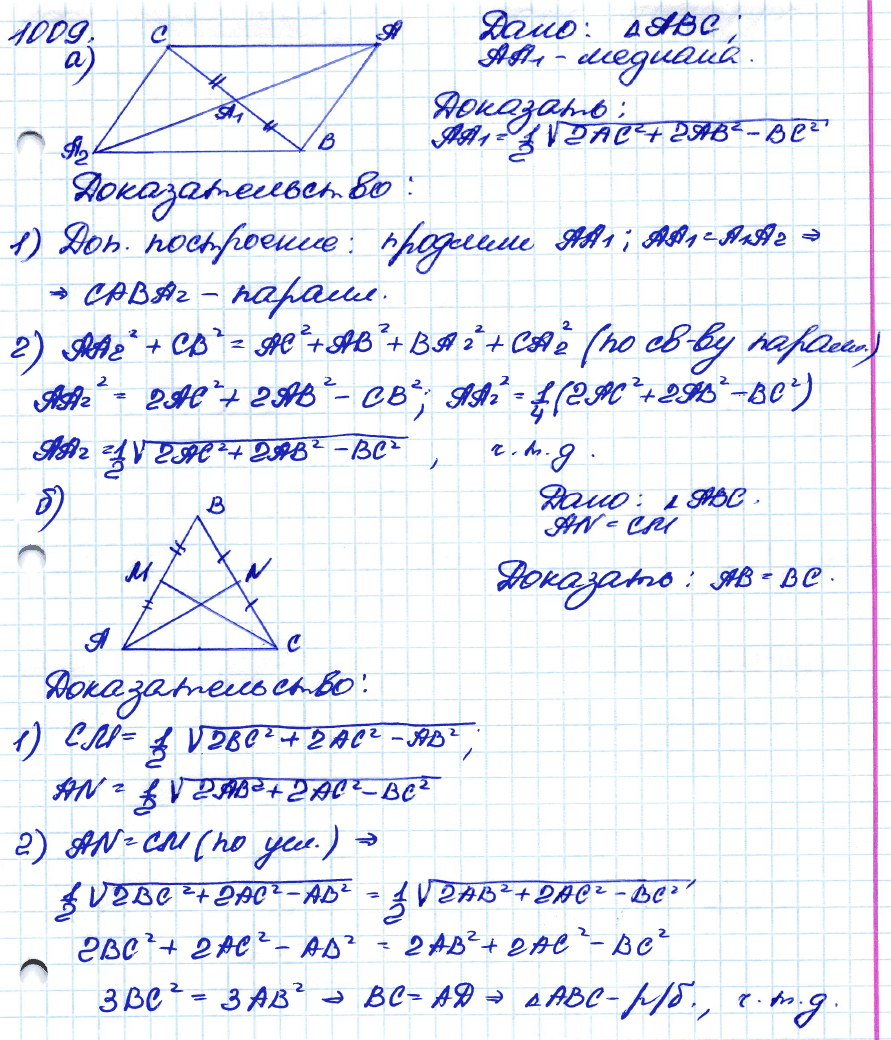 1009.
а)
C A
A₁
A₂ B
Дано: △ABC;
AA₁ - медиана.
Доказать:
AA₁ = 1/2 √(2AC² + 2AB² - BC²)
Доказательство:
1) Доп. построение: продлим AA₁; AA₁ = A₁A₂ ⇒
⇒ CABA₂ - паралл.
2) AA₂² + CB² = AC² + AB² + BA₂² + CA₂² (по св-ву паралл.)
AA₂² = 2AC² + 2AB² - CB²; AA₂² = 1/4 (2AC² + 2AB² - BC²)
AA₂ = 1/2 √(2AC² + 2AB² - BC²), ч.т.д.
б)
B
M N
A C
Дано: △ABC.
AN = CM
Доказать: AB = BC.
Доказательство:
1) CM = 1/2 √(2BC² + 2AC² - AB²);
AN = 1/2 √(2AB² + 2AC² - BC²)
2) AN = CM (по усл.) ⇒
1/2 √(2BC² + 2AC² - AB²) = 1/2 √(2AB² + 2AC² - BC²)
2BC² + 2AC² - AB² = 2AB² + 2AC² - BC²
3BC² = 3AB² ⇒ BC = AB ⇒ △ABC - р/б., ч.т.д.